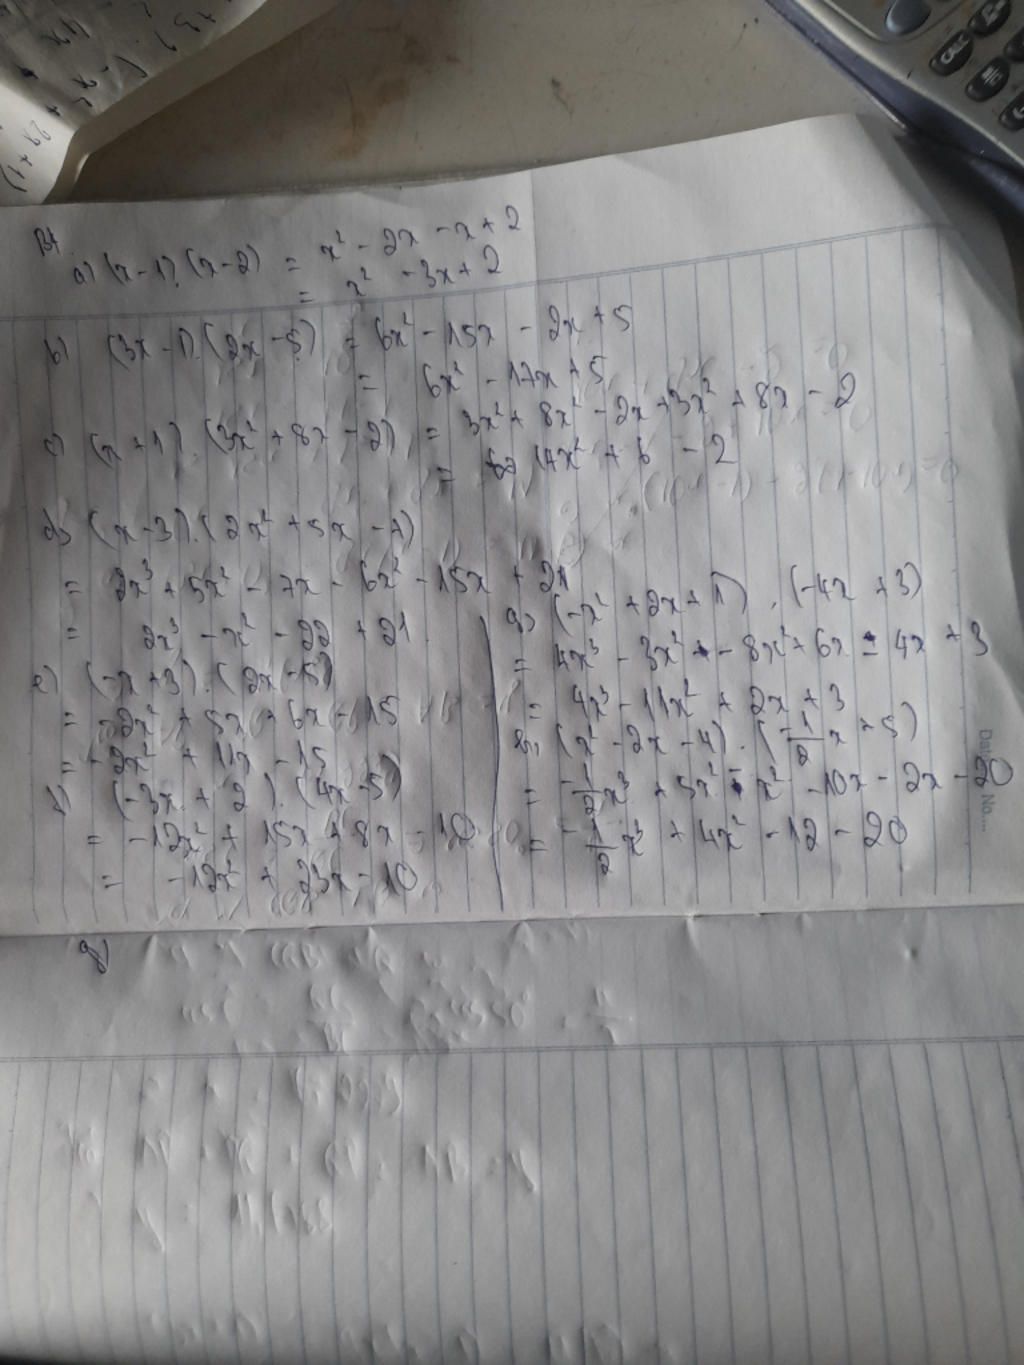 B4
a) (x-1).(x-2) = x² - 2x - x + 2
= x² - 3x + 2
b) (3x-1).(2x-5) = 6x² - 15x - 2x + 5
= 6x² - 17x + 5
c) (x+1).(3x²+8x-2) = 3x² + 8x² - 2x + 3x² + 8x - 2
= 14x² + 6 - 2
d) (x-3).(2x²+5x-7)
= 2x³ + 5x² - 7x - 6x² - 15x + 21
= 2x³ - x² - 22 + 21
e) (-x+3).(2x-5)
= -2x² + 5x + 6x - 15
= -2x² + 11x - 15
f) (-3x+2).(4x-5)
= -12x² + 15x + 8x - 10
= -12x² + 23x - 10
g) (-x²+2x+1).(-4x+3)
= 4x³ - 3x² - 8x² + 6x - 4x + 3
= 4x³ - 11x² + 2x + 3
(x²-2x-4).(-1/2x+5)
= -1/2x³ + 5x² - x² - 10x - 2x - 20
= -1/2x³ + 4x² - 12 - 20
g
No...
CALL